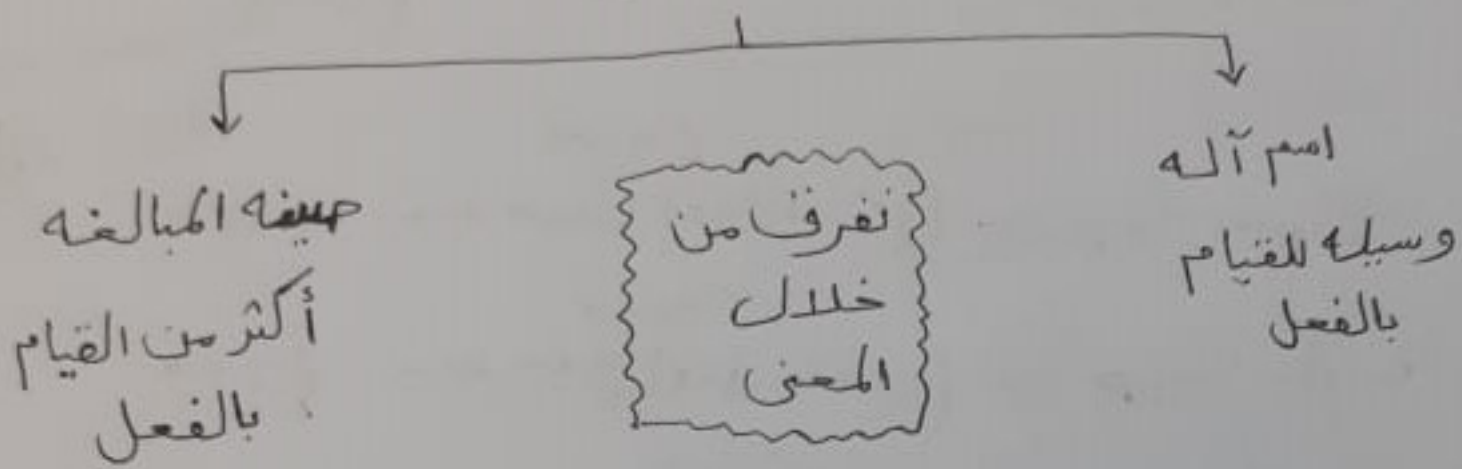 اسم آله
وسيله للقيام
بالفعل
نفرق من
خلال
المعنى
صيغه المبالغه
أكثر من القيام
بالفعل